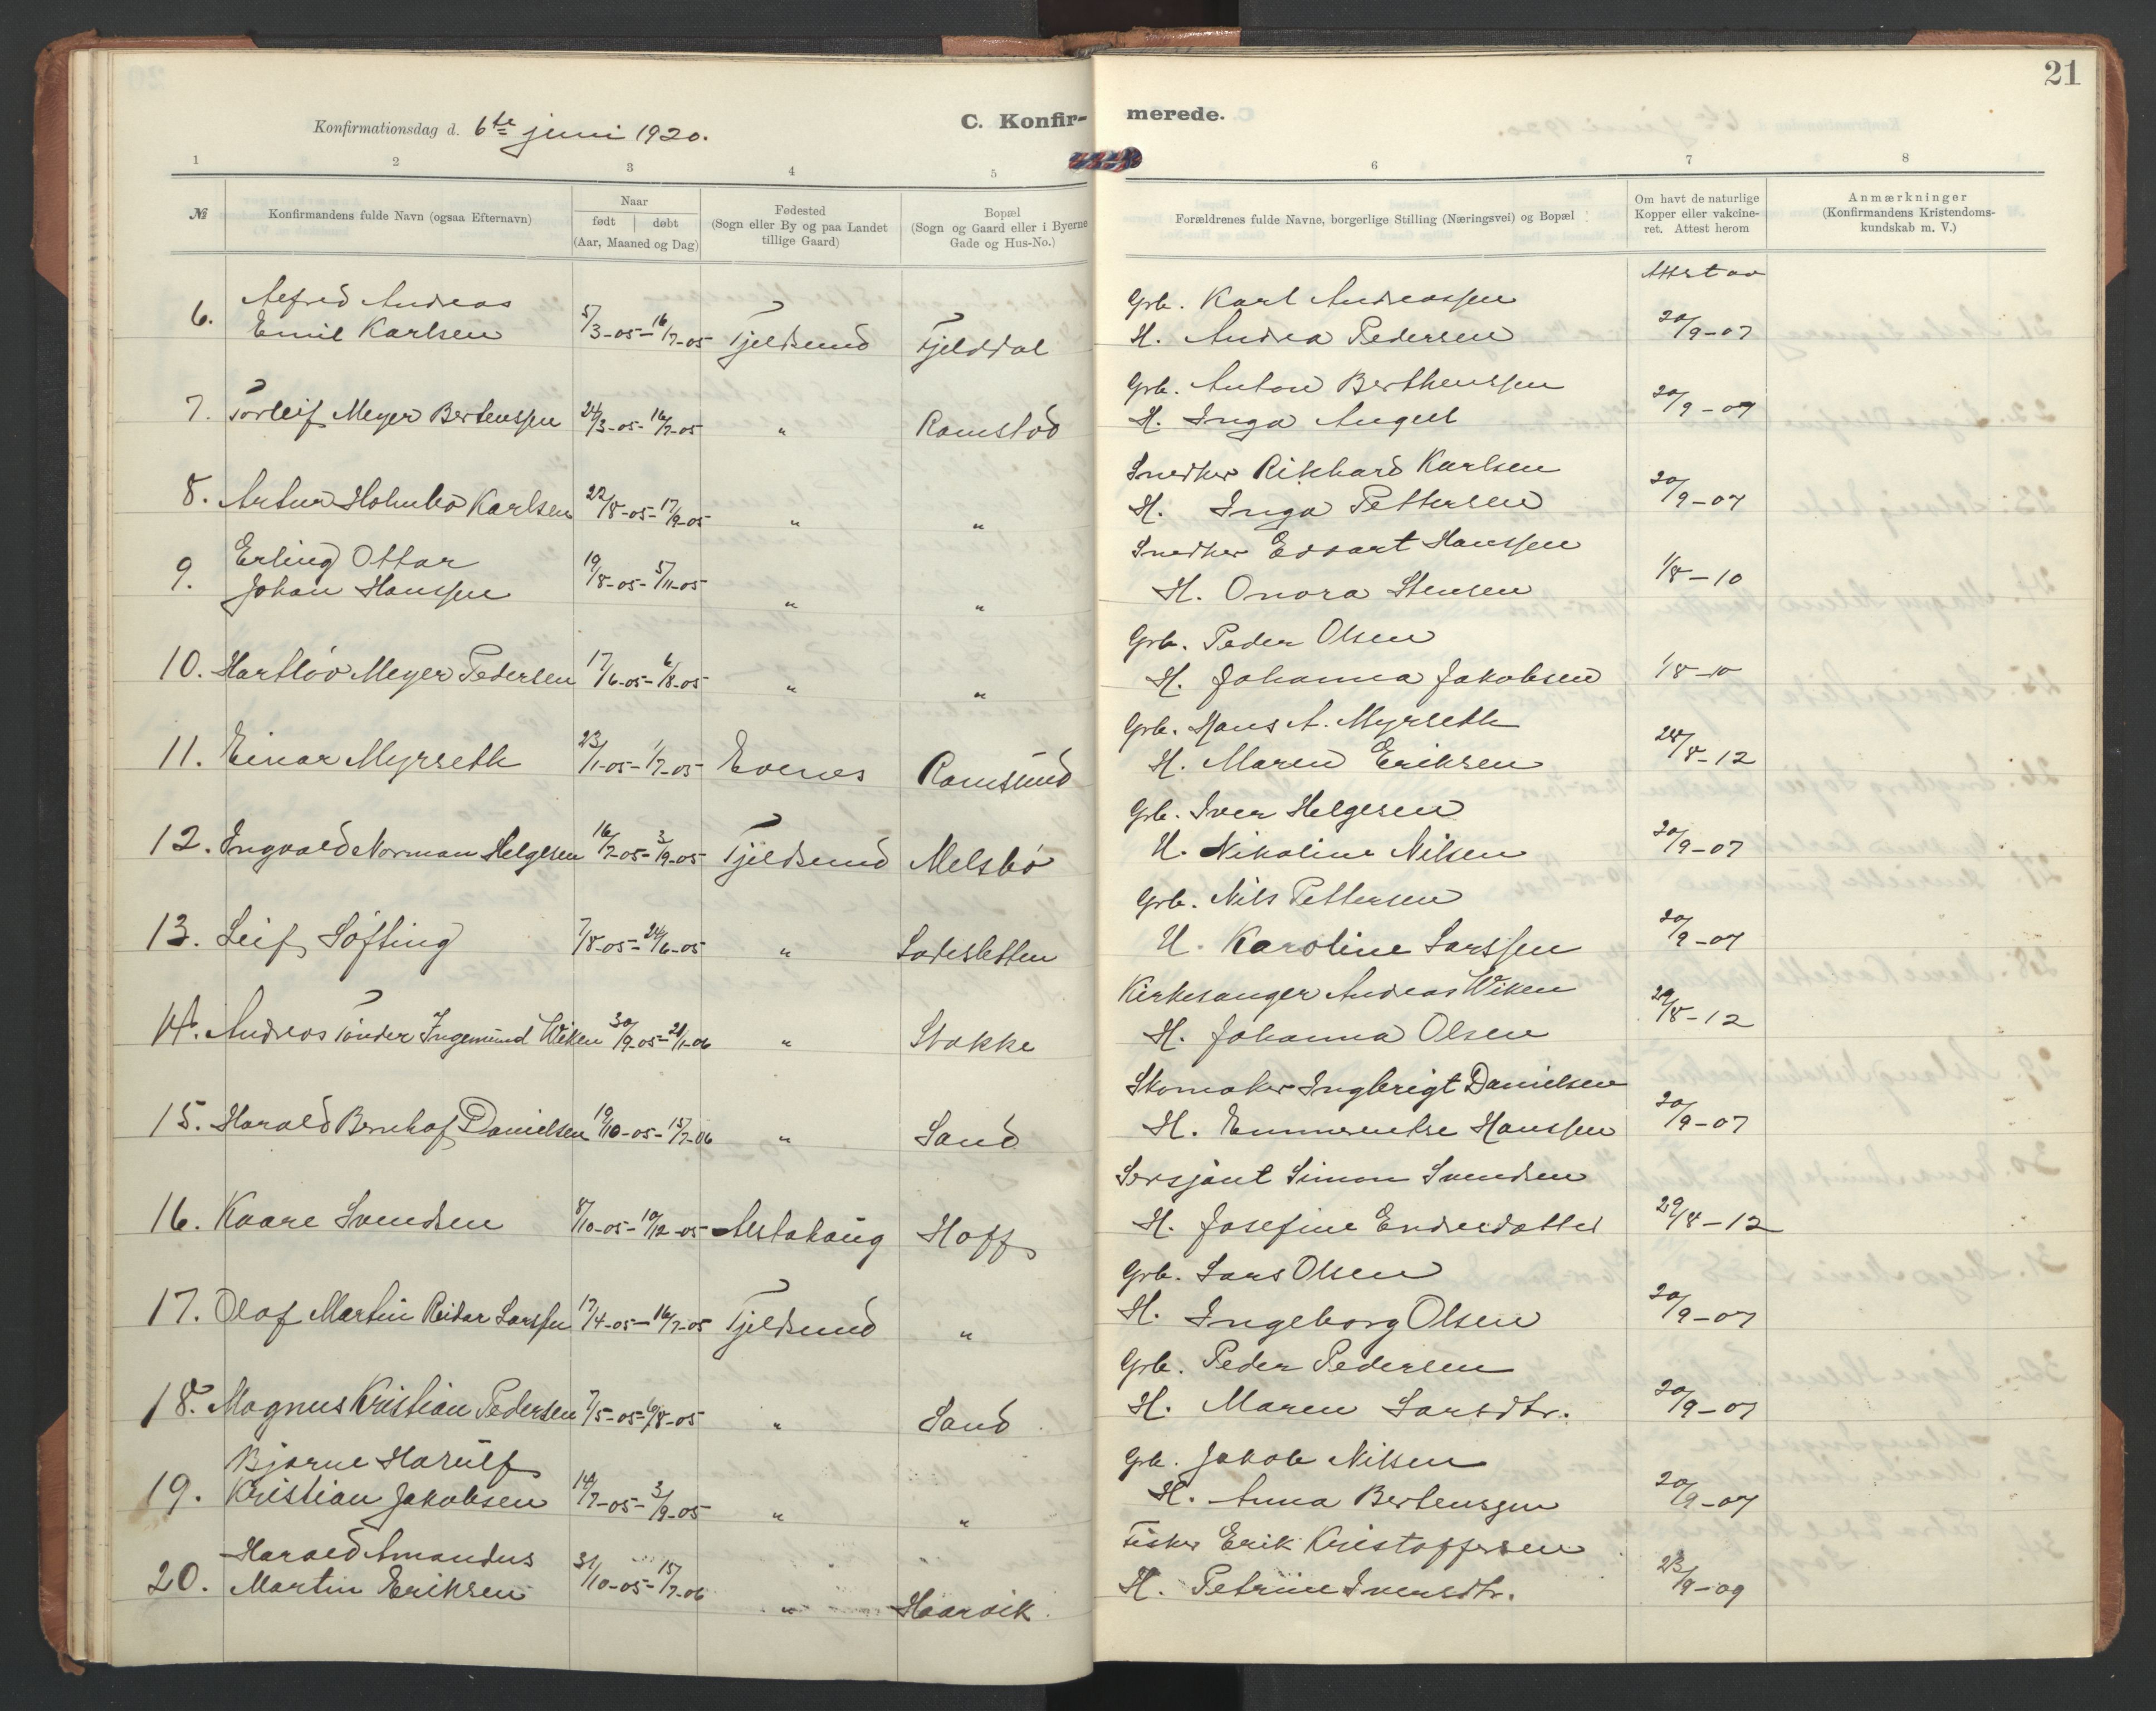 21
Konfirmationsdag d. 6te juni 1920.
C. Konfir-
merede.
1 2 3 4 5 6 7 8
№
Konfirmandens fulde Navn (ogsaa Efternavn)
Naar
født | døbt
(Aar, Maaned og Dag)
Fødested
(Sogn eller By og paa Landet
tillige Gaard)
Bopæl
(Sogn og Gaard eller i Byerne
Gade og Hus-No.)
Forældrenes fulde Navne, borgerlige Stilling (Næringsvei) og Bopæl
Om havt de naturlige
Kopper eller vakcine-
ret. Attest herom
Anmærkninger
(Konfirmandens Kristendoms-
kundskab m. V.)
Attest av
Alfred Andreas Grb. Karl Andreassen
6. Emil Karlsen 5/3-05-16/7-05 Tjeldsund Fjelddal H. Andrea Pedersen 20/9-07
Grb. Anton Berthenssen
7. Torleif Meyer Bertenssen 24/3-05-16/7-05 " Ramstad H. Inga August 20/9-07
Snedker Rikhard Karlsen
8. Artur Holmbo Karlsen 22/8-05-17/9-05 " " H. Inga Pettersen 20/9-07
Erling Ottar Snedker Edvart Hanssen
9. Johan Hanssen 19/8-05-5/11-05 " " H. Onora Stensen 1/8-10
Grb. Peder Olsen
10. Hartløv Meyer Pedersen 17/6-05-6/8-05 " " H. Johanna Jakobsen 1/8-10
Grb. Hans A. Myrseth
11. Einar Myrseth 23/1-05-1/7-05 Evenes Ramsund H. Maren Eriksen 28/8-12
Grb. Iver Helgesen
12. Ingvald Norman Helgesen 16/7-05-3/9-05 Tjeldsund Melsbø H. Nikoline Nilsen 20/9-07
Grb. Nils Pettersen
13. Leif Søfting 7/8-05-24/6-05 " Sandesletten H. Karoline Larssen 20/9-07
Kirkesanger Andreas Wiken
14. Andreas Tønder Ingemund Wiken 30/9-05-21/1-06 " Stokke H. Johanna Olsen 29/8-12
Skomaker Ingbrigt Danielsen
15. Harald Bernhof Danielsen 19/10-05-15/7-06 " Sand H. Emmerentse Hanssen 20/9-07
Sersjant Simon Svendsen
16. Kaare Svendsen 8/10-05-10/12-05 Alstahaug Hoff H. Josefine Endresdatter 29/8-12
Grb. Lars Olsen
17. Olaf Martin Reidar Larssen 17/4-05-16/7-05 Tjeldsund " H. Ingeborg Olsen 20/9-07
Grb. Peder Pedersen
18. Magnus Kristian Pedersen 7/5-05-6/8-05 " Sand H. Maren Larsdtr. 20/9-07
Bjarne Harulf Grb. Jakob Nilsen
19. Kristian Jakobsen 14/7-05-3/9-05 " " H. Anna Bertenssen 20/9-07
Harald Amandus Fisker Erik Kristoffersen
20. Martin Eriksen 31/10-05-15/7-06 " Haarvik H. Petrine Iversdtr. 23/9-09